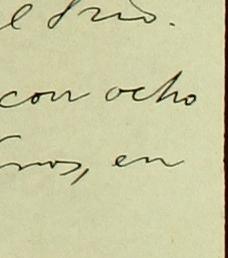 el frio.
con ocho
nos, en